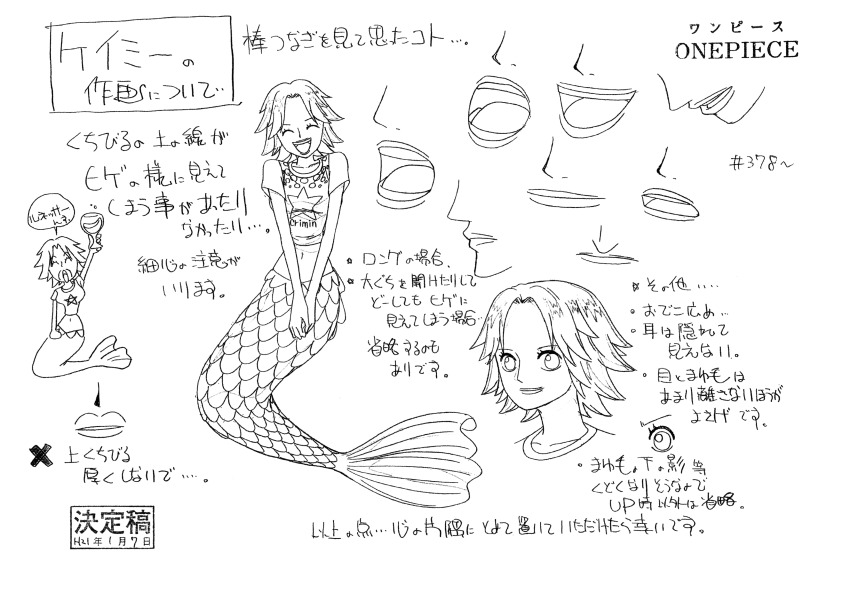 ケイミーの
作画について‥
棒つなぎを見て思たコト…。
ワンピース
ONEPIECE
くちびるの上の線が
ヒゲの様に見えて
しまう事があったり
なかったり…。
細心の注意が
いります。
#378〜
crimin
・ロングの場合、
・大ぐちを開けたりして
どーしてもヒゲに
見えてしまう場合‥
省略するのも
ありです。
その他‥‥
・おでこ広め…
・耳は隠れて
見えない。
・目とまゆ毛は
あまり離さないほうが
よさげです。
・まゆ毛の下の影等
くどくなりそうなので
UP時以外は省略。
上くちびる
厚くしないで…。
決定稿
H21年1月7日
以上の点…心の片隅にとめて置いていただけたら幸いです。